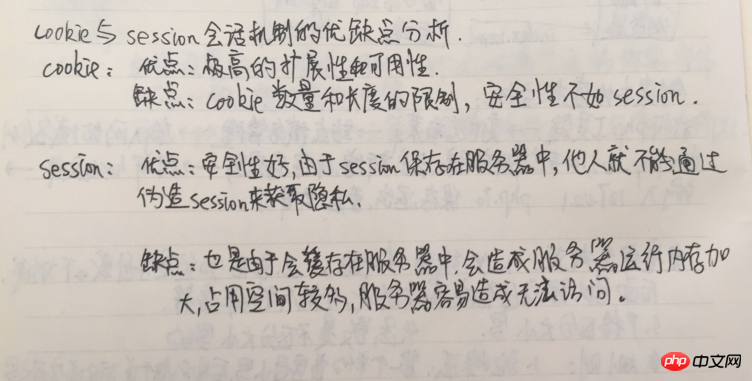 cookie与session会话机制的优缺点分析.
cookie: 优点:极高的扩展性和可用性.
缺点:cookie数量和长度的限制,安全性不如session.
session: 优点:安全性好,由于session保存在服务器中,他人就不能通过
伪造session来获取隐私.
缺点:也是由于会缓存在服务器中,会造成服务器运行内存加
大,占用空间较多,服务器容易造成无法访问。
php中文网